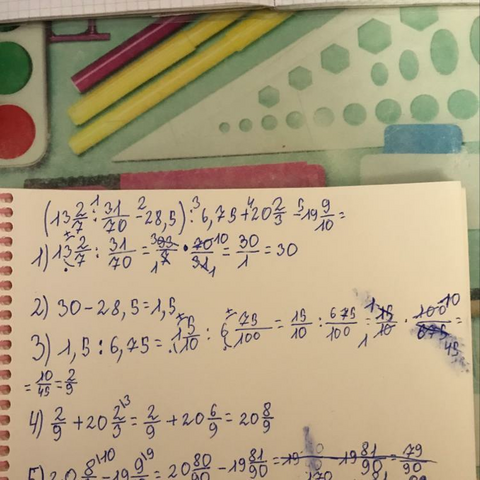 (13 2/7 : 31/70 - 28,5) : 6,75 + 20 2/3 - 19 9/10 =
1) 13 2/7 : 31/70 = 93/7 · 70/31 = 30/1 = 30
2) 30 - 28,5 = 1,5
3) 1,5 : 6,75 = 1 5/10 : 6 75/100 = 15/10 : 675/100 = 15/10 · 100/675 =
= 10/45 = 2/9
4) 2/9 + 20 2/3 = 2/9 + 20 6/9 = 20 8/9
5) 20 8/9 - 19 9/10 = 20 80/90 - 19 81/90 = 19 - 19 81/90 = 79/90